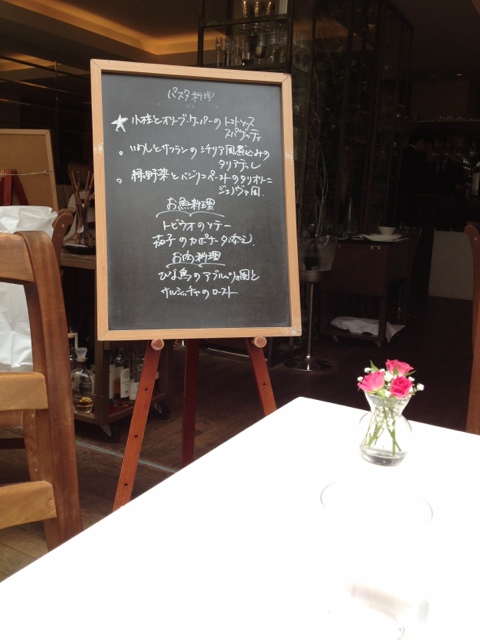 パスタ料理
★ 小柱とオリーブ、ケーパーのトマトソース
スパゲッティ
。いわしとサフランのシチリア風煮込みの
タリアテーレ
。夏野菜とバジリコペーストのタリオリーニ
ジェノヴァ風
お魚料理
トビウオのソテー
茄子のカポナータ添え
お肉料理
ひな鳥のアブルッツォ風と
サルシッチャのロースト